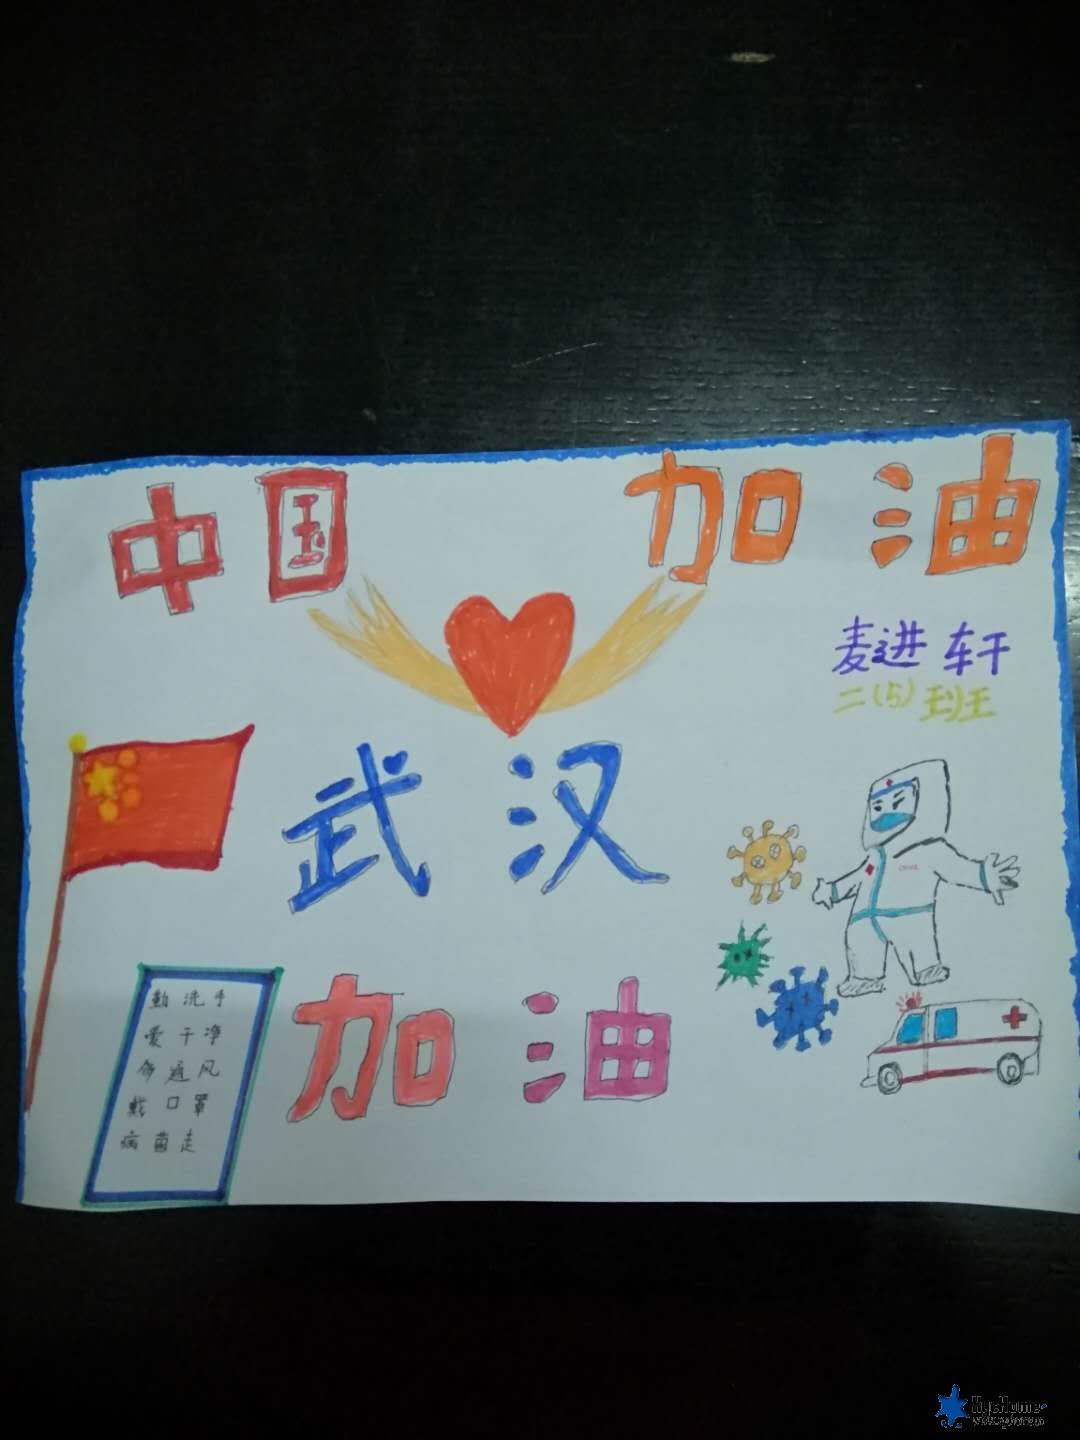 中国 加油
麦进轩
二(5)班
武汉
加油
勤洗手
爱干净
通风
戴口罩
病菌走